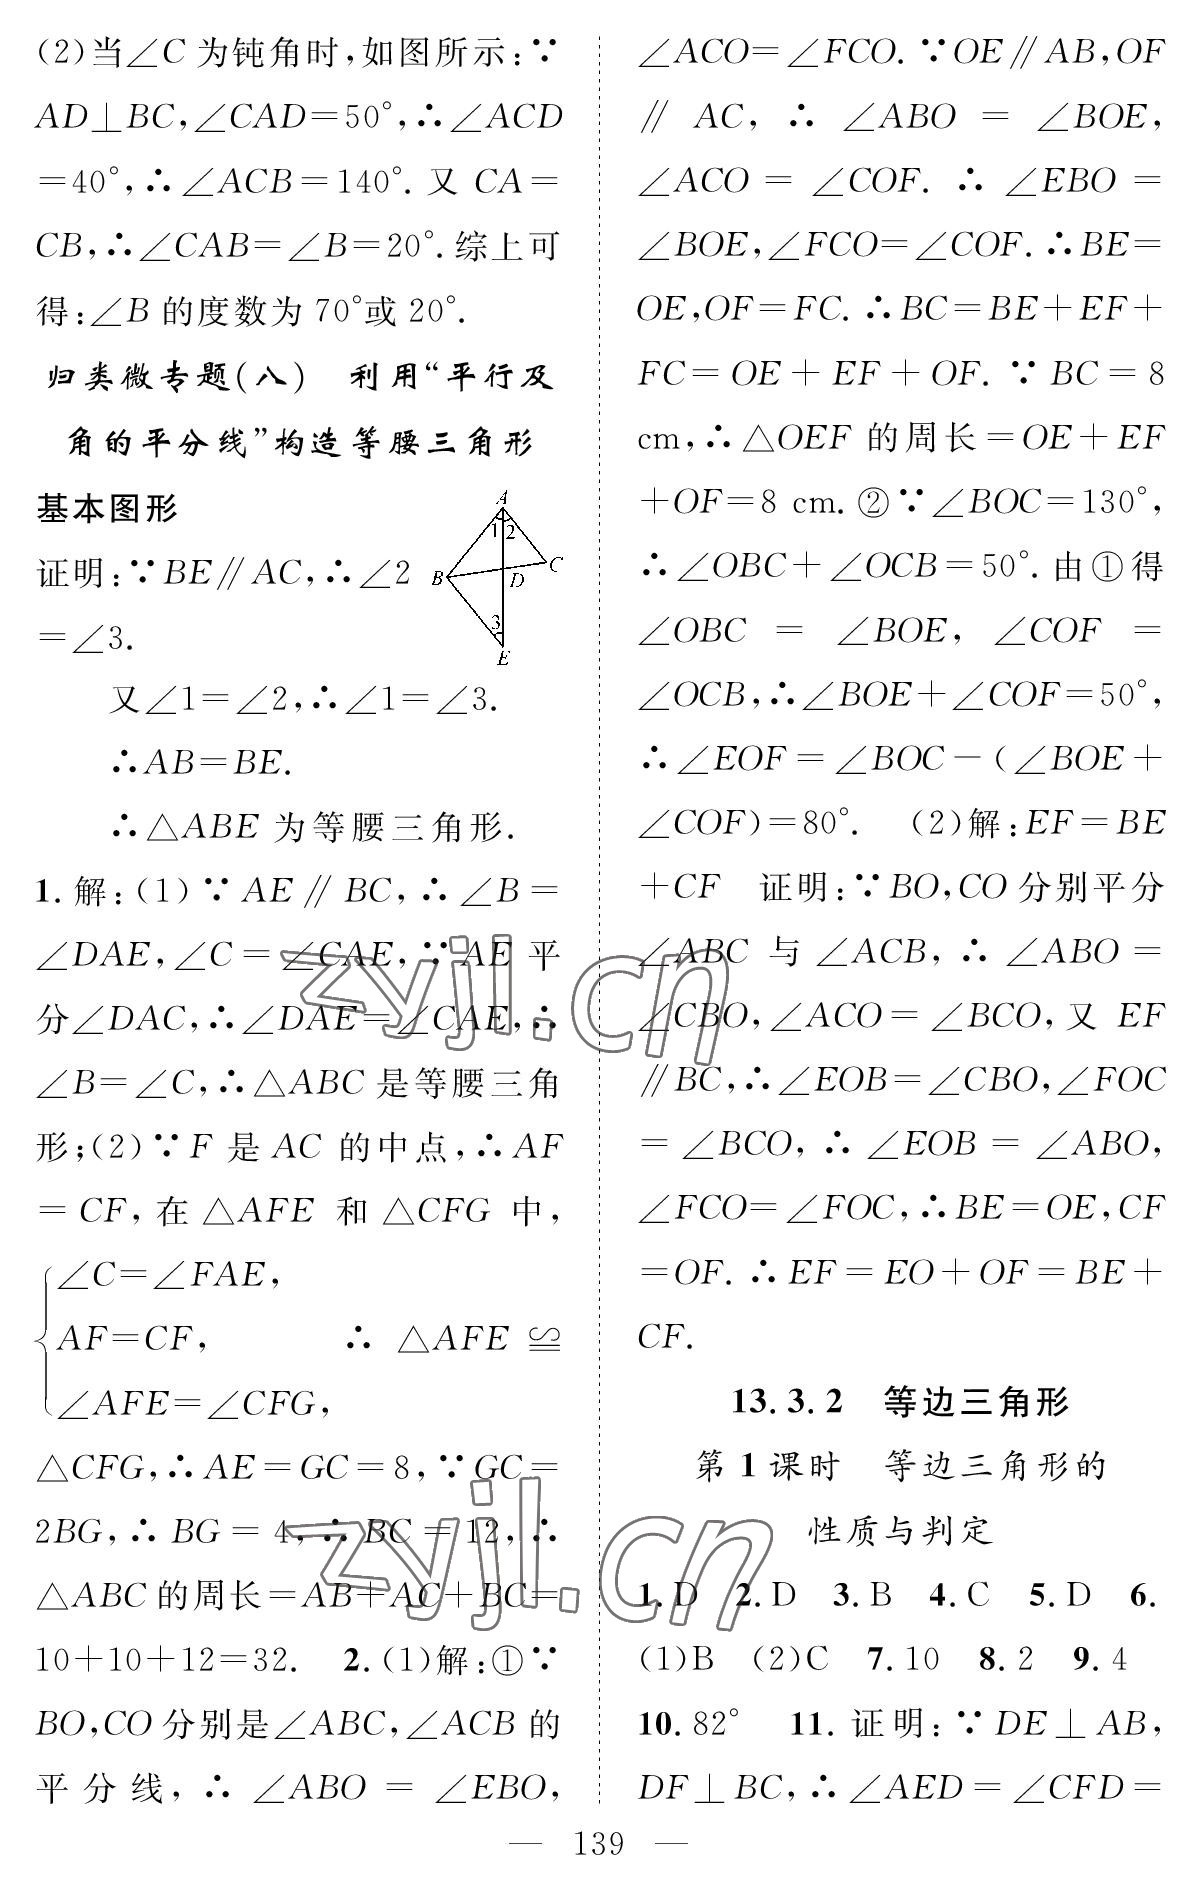 (2)当∠C为钝角时,如图所示:∵
AD⊥BC,∠CAD=50°,∴∠ACD
=40°,∴∠ACB=140°.又CA=
CB,∴∠CAB=∠B=20°.综上可
得:∠B的度数为70°或20°.
归类微专题(八) 利用“平行及
角的平分线”构造等腰三角形
基本图形
证明:∵BE∥AC,∴∠2
=∠3.
A
1 2
B
C
D
3
E
又∠1=∠2,∴∠1=∠3.
∴AB=BE.
∴△ABE为等腰三角形.
1.解:(1)∵AE∥BC,∴∠B=
∠DAE,∠C=∠CAE,∵AE平
分∠DAC,∴∠DAE=∠CAE,∴
∠B=∠C,∴△ABC是等腰三角
形;(2)∵F是AC的中点,∴AF
=CF,在△AFE和△CFG中,
∠C=∠FAE,
AF=CF, ∴△AFE≌
∠AFE=∠CFG,
△CFG,∴AE=GC=8,∵GC=
2BG,∴BG=4,∴BC=12,∴
△ABC的周长=AB+AC+BC=
10+10+12=32. 2.(1)解:①∵
BO,CO分别是∠ABC,∠ACB的
平分线,∴∠ABO=∠EBO,
∠ACO=∠FCO.∵OE∥AB,OF
∥AC,∴∠ABO=∠BOE,
∠ACO=∠COF.∴∠EBO=
∠BOE,∠FCO=∠COF.∴BE=
OE,OF=FC.∴BC=BE+EF+
FC=OE+EF+OF.∵BC=8
cm,∴△OEF的周长=OE+EF
+OF=8 cm.②∵∠BOC=130°,
∴∠OBC+∠OCB=50°.由①得
∠OBC=∠BOE,∠COF=
∠OCB,∴∠BOE+∠COF=50°,
∴∠EOF=∠BOC-(∠BOE+
∠COF)=80°. (2)解:EF=BE
+CF 证明:∵BO,CO分别平分
∠ABC与∠ACB,∴∠ABO=
∠CBO,∠ACO=∠BCO,又EF
∥BC,∴∠EOB=∠CBO,∠FOC
=∠BCO,∴∠EOB=∠ABO,
∠FCO=∠FOC,∴BE=OE,CF
=OF.∴EF=EO+OF=BE+
CF.
13.3.2 等边三角形
第1课时 等边三角形的
性质与判定
1.D 2.D 3.B 4.C 5.D 6.
(1)B (2)C 7.10 8.2 9.4
10.82° 11.证明:∵DE⊥AB,
DF⊥BC,∴∠AED=∠CFD=
— 139 —
zyjl.cn
zyjl.cn